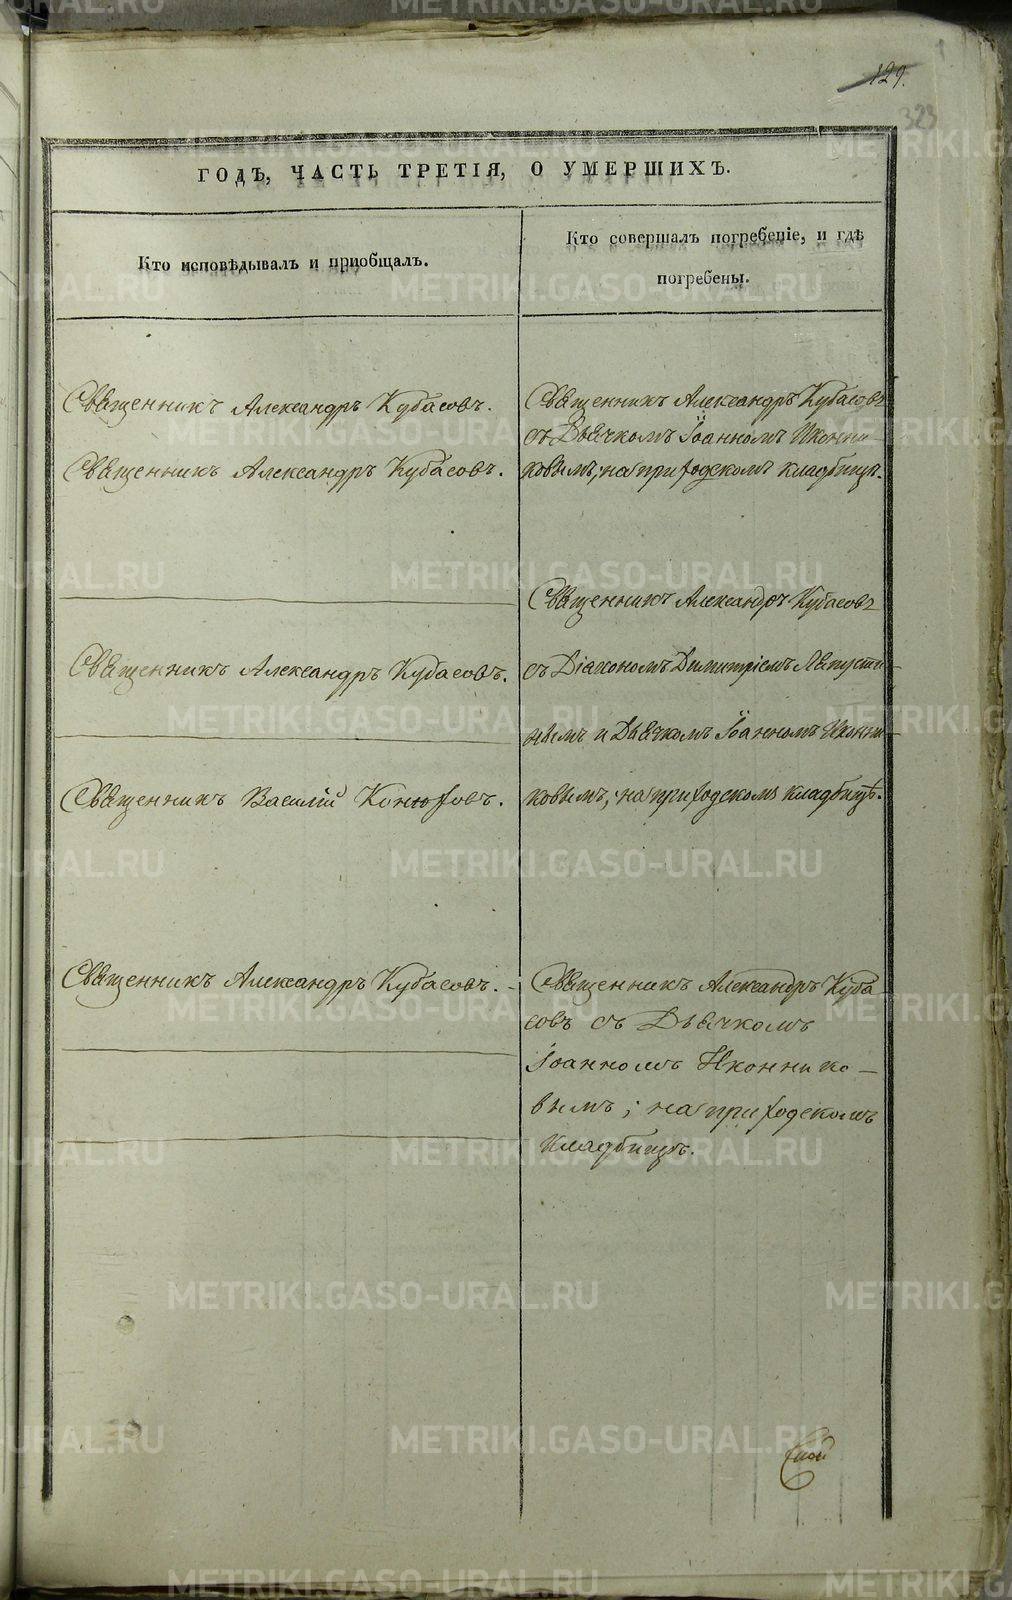 129.
323
ГОДЪ, ЧАСТЬ ТРЕТІЯ, О УМЕРШИХЪ.
Кто исповѣдывалъ и приобщалъ.
Кто совершалъ погребеніе, и гдѣ
погребены.
Священникъ Александръ Кубасовъ.
Священникъ Александръ Кубасовъ.
Священникъ Александръ Кубасовъ.
Священникъ Василій Конюховъ.
Священникъ Александръ Кубасовъ.
Священникъ Александръ Кубасовъ
съ Дьячкомъ Іоанномъ Иконни-
ковымъ; на приходскомъ кладбищѣ.
Священникъ Александръ Кубасовъ
съ Діакономъ Димитріемъ Лепусти-
нымъ и Дьячкомъ Іоанномъ Иконни-
ковымъ; на приходскомъ кладбищѣ.
Священникъ Александръ Куба
совъ съ Дьячкомъ
Іоанномъ Иконнико-
вымъ; на приходскомъ
кладбищѣ.
METRIKI.GASO-URAL.RU